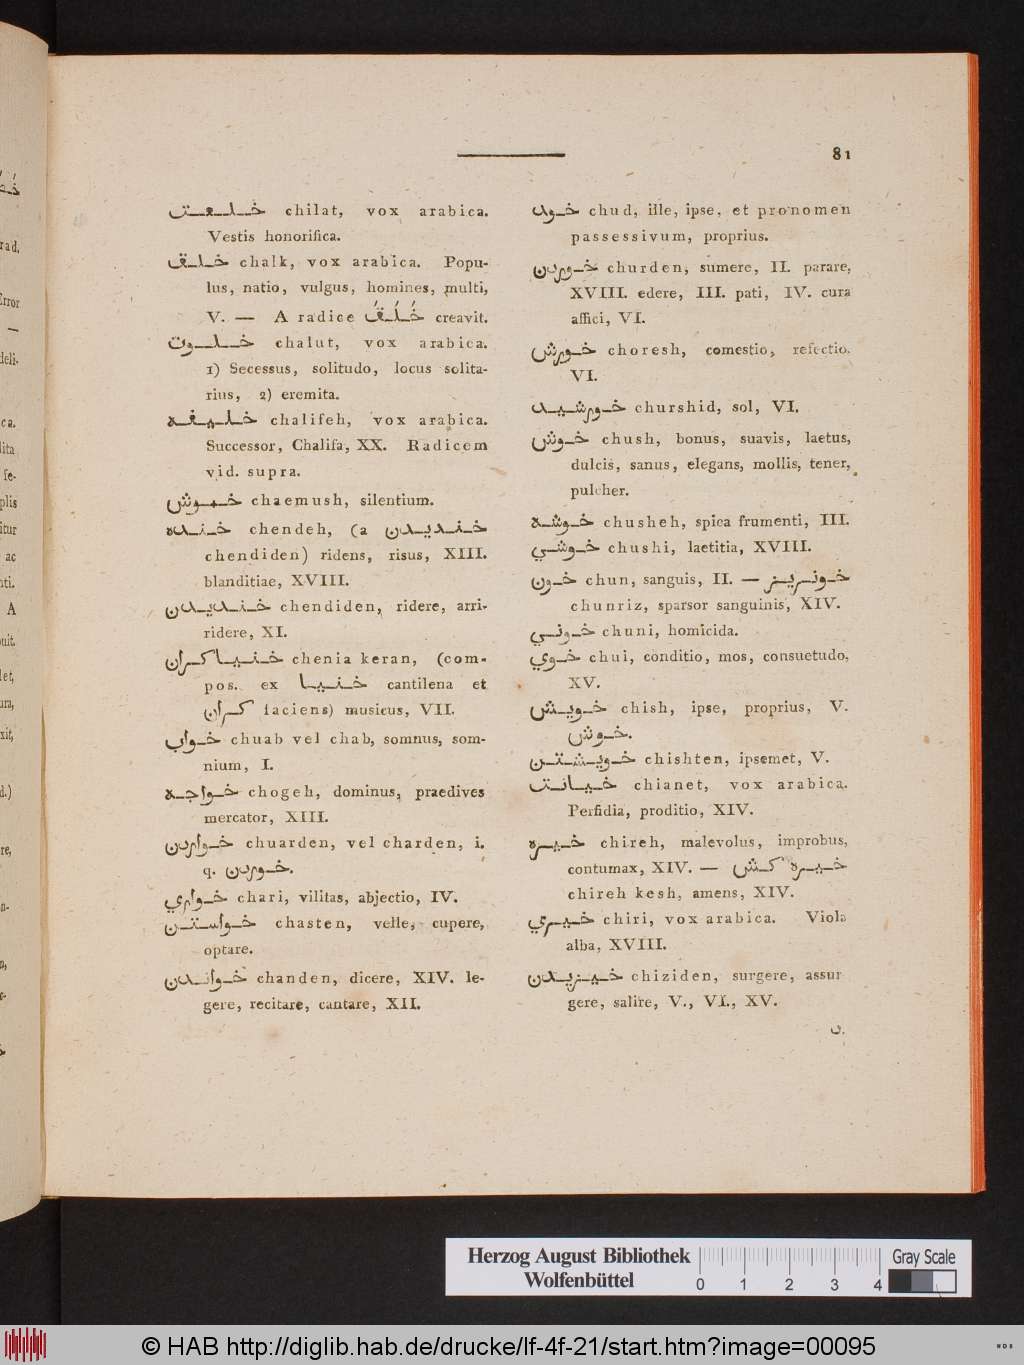 81
خلعت chilat, vox arabica.
Vestis honorifica.
خلق chalk, vox arabica. Popu-
lus, natio, vulgus, homines, multi,
V. — A radice خُلُقُ creavit.
خلوت chalut, vox arabica.
1) Secessus, solitudo, locus solita-
rius, 2) eremita.
خليفه chalifeh, vox arabica.
Successor, Chalifa, XX. Radicem
vid. supra.
خموش chaemush, silentium.
خنده chendeh, (a خنديدن
chendiden) ridens, risus, XIII.
blanditiae, XVIII.
خنديدن chendiden, ridere, arri-
ridere, XI.
خنياكران chenia keran, (com-
pos. ex خنيا cantilena et
كران faciens) musicus, VII.
خواب chuab vel chab, somnus, som-
nium, I.
خواجه chogeh, dominus, praedives
mercator, XIII.
خواردن chuarden, vel charden, i.
q. خوردن.
خواري chari, vilitas, abjectio, IV.
خواستن chasten, velle, cupere,
optare.
خواندن chanden, dicere, XIV. le-
gere, recitare, cantare, XII.
خود chud, ille, ipse, et pronomen
passessivum, proprius.
خوردن churden, sumere, II. parare,
XVIII. edere, III. pati, IV. cura
affici, VI.
خورش choresh, comestio, refectio,
VI.
خورشيد churshid, sol, VI.
خوش chush, bonus, suavis, laetus,
dulcis, sanus, elegans, mollis, tener,
pulcher.
خوشه chusheh, spica frumenti, III.
خوشي chushi, laetitia, XVIII.
خون chun, sanguis, II. — خونريز
chunriz, sparsor sanguinis, XIV.
خوني chuni, homicida.
خوي chui, conditio, mos, consuetudo,
XV.
خويش chish, ipse, proprius, V.
خوش.
خويشتن chishten, ipsemet, V.
خيانت chianet, vox arabica.
Perfidia, proditio, XIV.
خيره chireh, malevolus, improbus,
contumax, XIV. — خيره كش
chireh kesh, amens, XIV.
خيري chiri, vox arabica. Viola
alba, XVIII.
خيزيدن chiziden, surgere, assur
gere, salire, V., VI., XV.
Herzog August Bibliothek
Wolfenbüttel
0 1 2 3 4
Gray Scale
© HAB http://diglib.hab.de/drucke/lf-4f-21/start.htm?image=00095